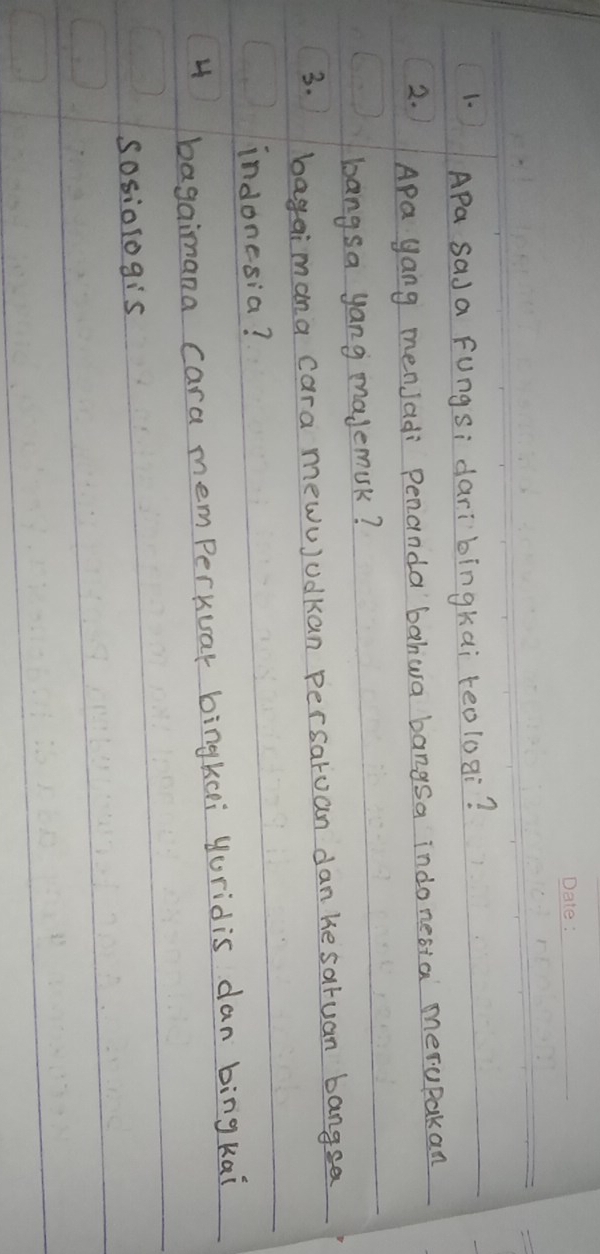 Date:
1. Apa saja fungsi dari bingkai teologi?
2. Apa yang menjadi penanda bahwa bangsa indonesia merupakan
bangsa yang majemuk?
3. bagaimana cara mewujudkan persatuan dan kesatuan bangsa
indonesia?
4 bagaimana cara memperkuat bingkai yuridis dan bingkai
sosiologis